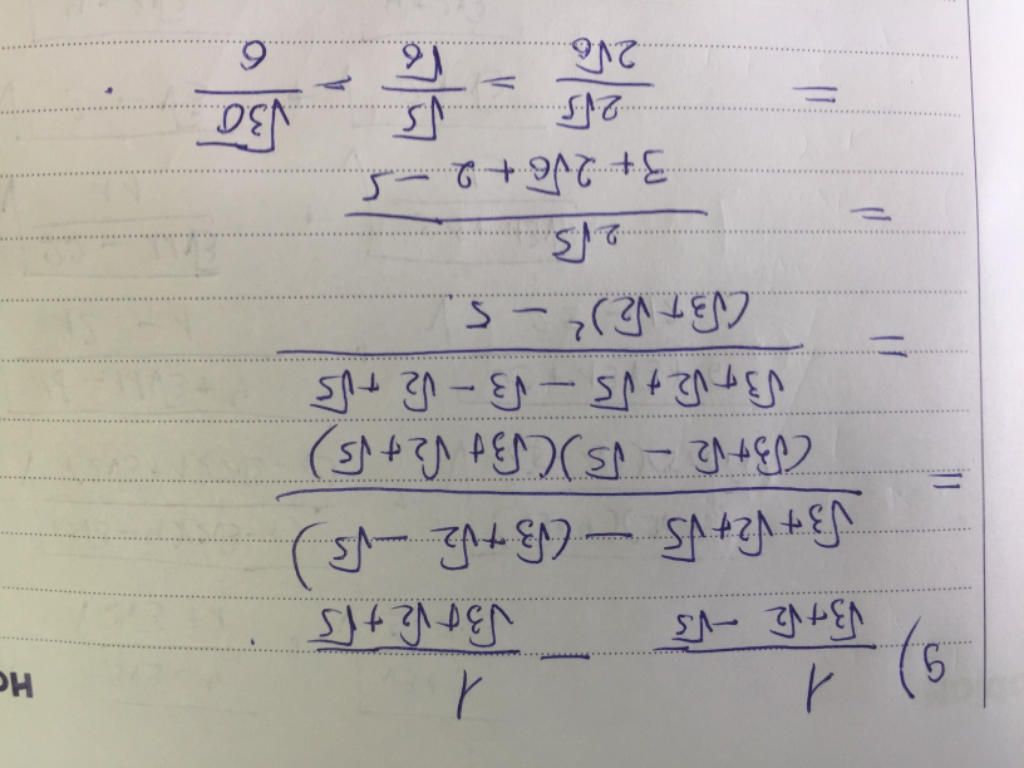 g) 1/(√3+√2 - √5) - 1/(√3+√2+√5) .
= (√3+√2+√5 - (√3+√2 - √5))/((√3+√2 - √5)(√3+√2+√5))
= (√3+√2+√5 - √3 - √2+√5)/((√3+√2)² - 5)
= 2√5/(3+2√6+2-5)
= 2√5/2√6 = √5/√6 = √30/6 .